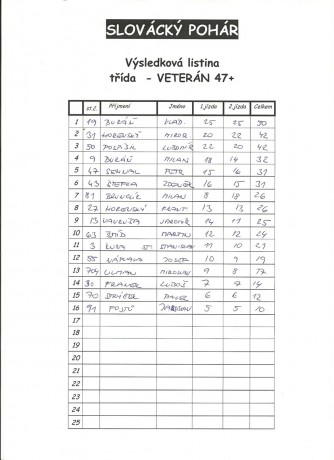 SLOVÁCKÝ POHÁR
Výsledková listina
třída - VETERÁN 47+
st.č. Příjmení Jméno 1.jízda 2.jízda Celkem
1 19 BURÁŇ VLAD. 25 25 50
2 31 HOROVSKÝ MIROS 20 22 42
3 50 POSPÍŠIL LUBOMÍR 22 20 42
4 9 BURÁŇ MILAN 18 14 32
5 47 PETR 15 16 31
6 43 ŠTEFKA ZDENĚK 16 15 31
7 81 MILAN 8 18 26
8 27 HOROVSKÝ FRANT 13 13 26
9 13 VAVRUŠA JAROMÍR 14 11 25
10 63 ŠMÍD MARTIN 12 12 24
11 3 KUBA ST. STANISLAV 11 10 21
12 55 NÁPLAVA JOSEF 10 9 19
13 704 ULMAN MIROSLAV 9 8 17
14 30 FRANEK LUBOŠ 7 7 14
15 70 PAVEL 6 6 12
16 91 FOJTŮ JAROSLAV 5 5 10
17
18
19
20
21
22
23
24
25